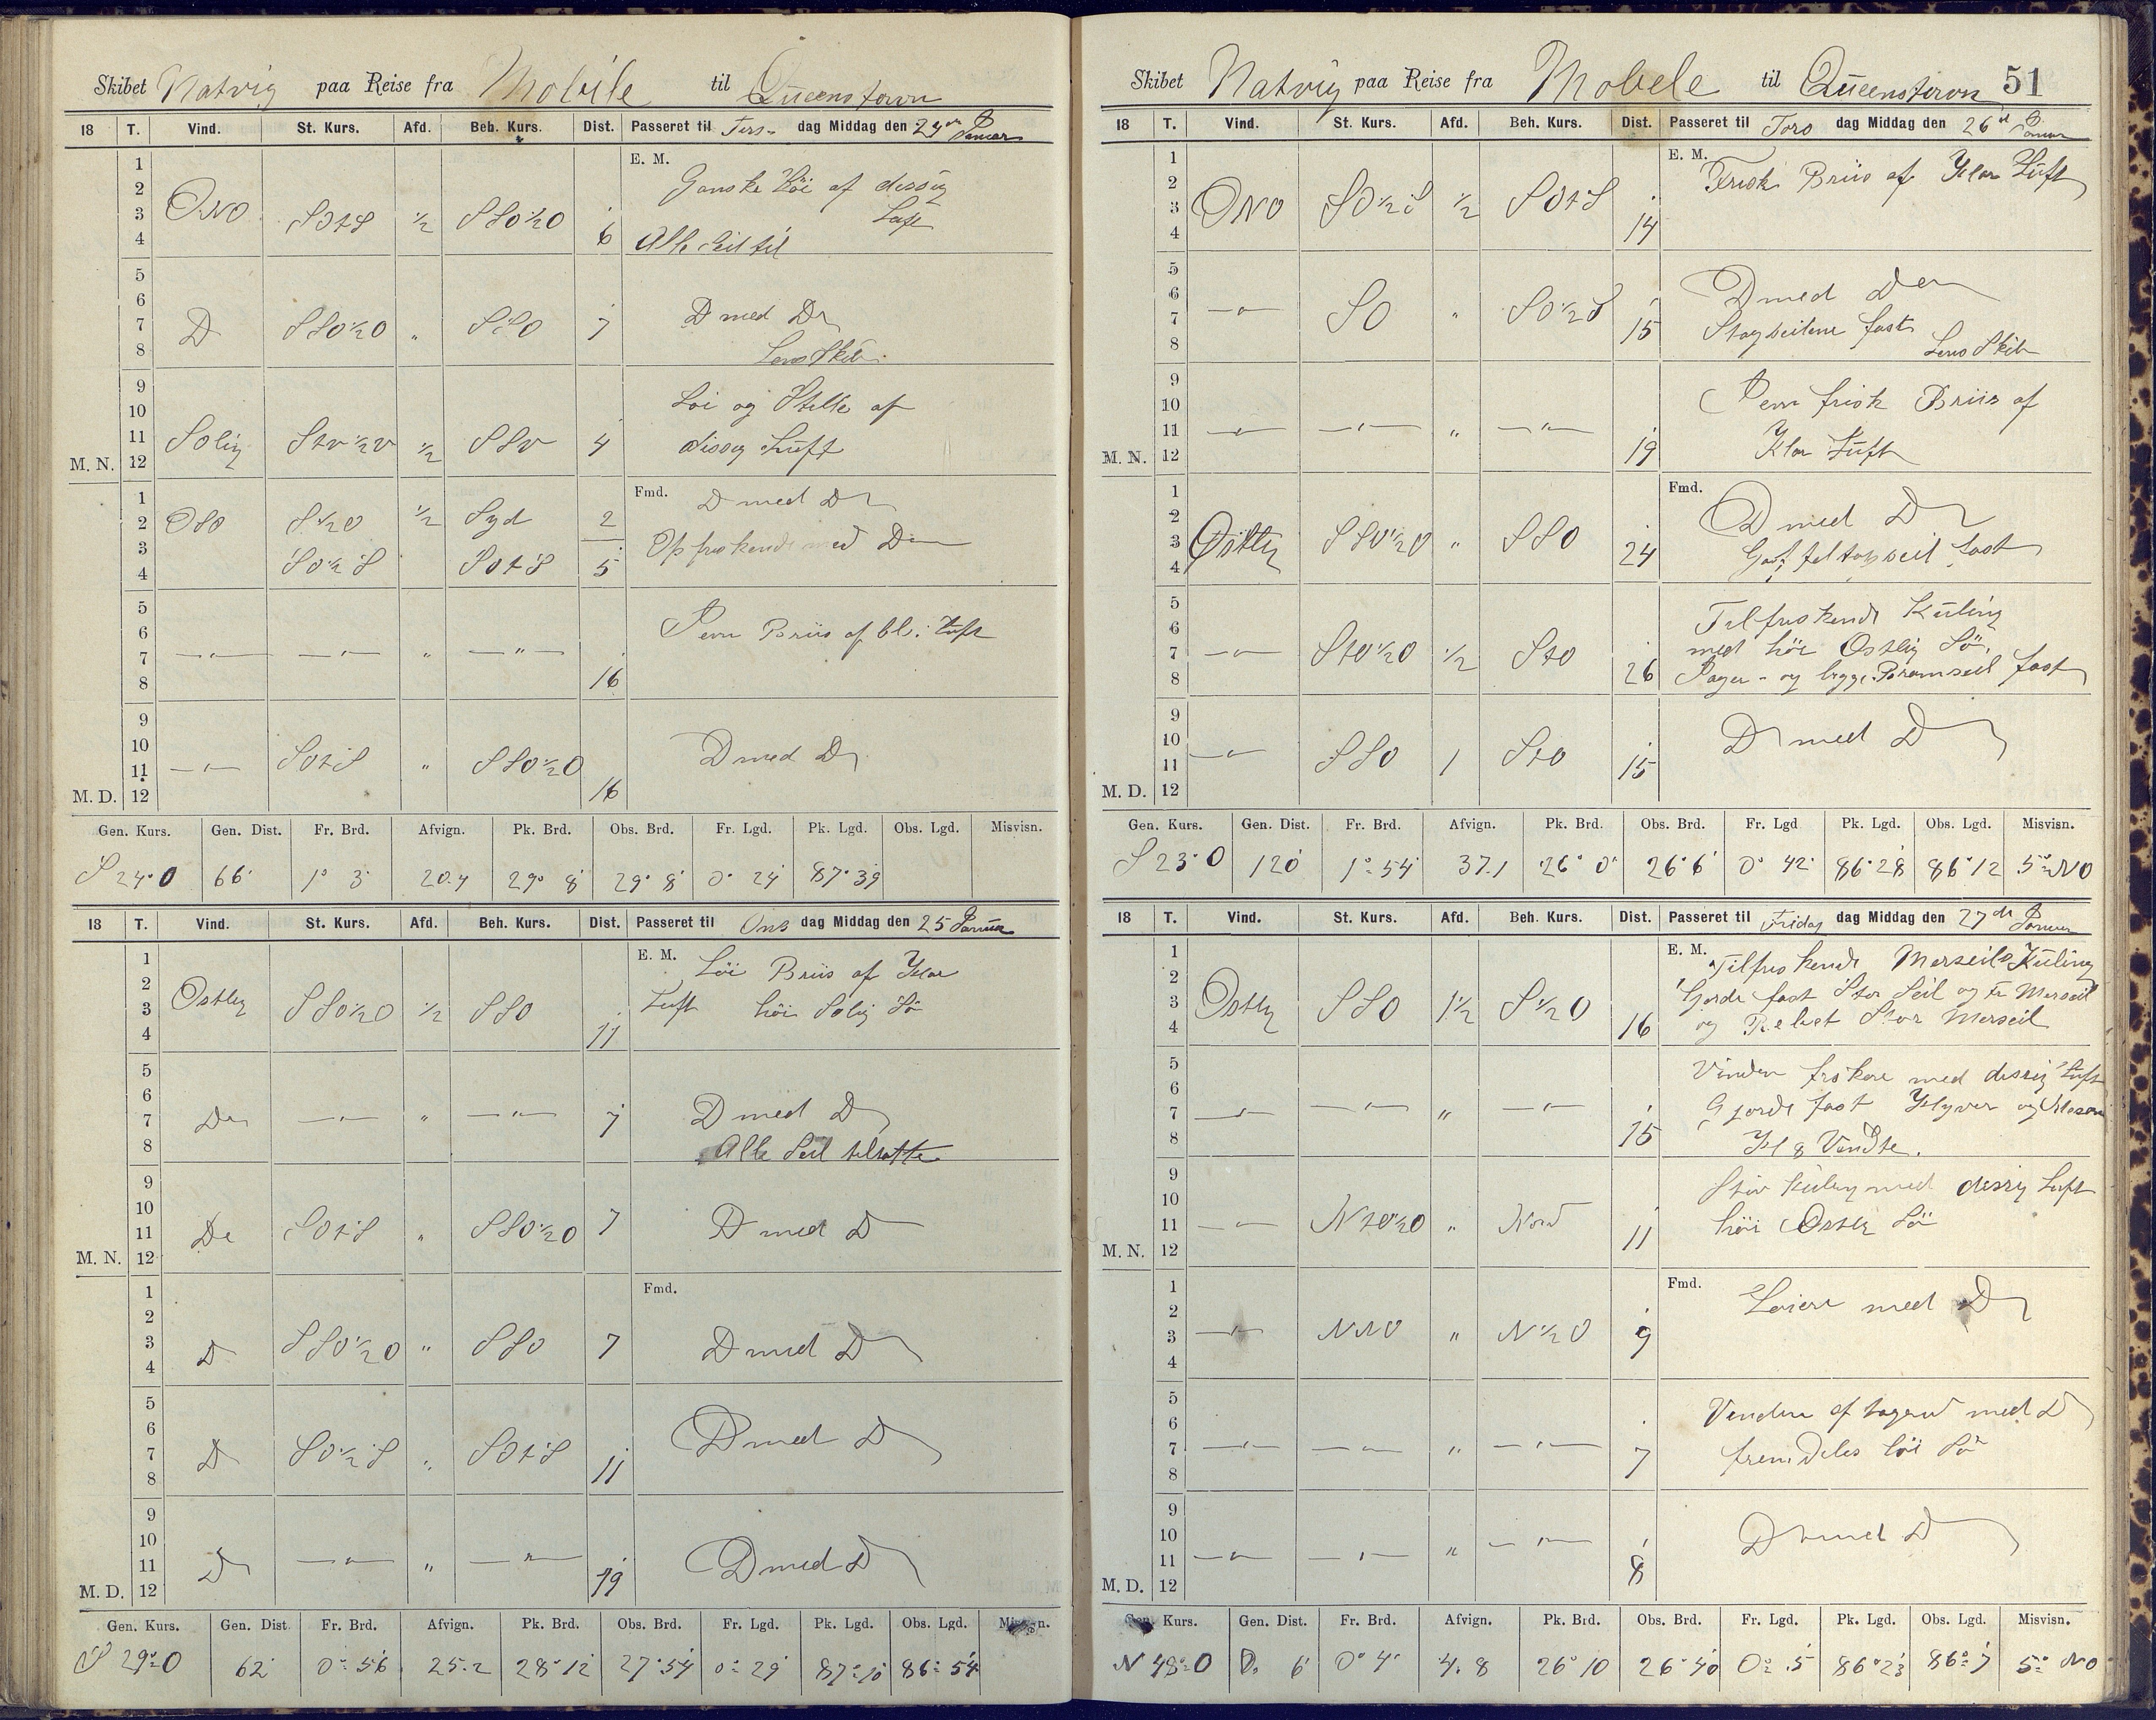 Skibet Natvig paa Reise fra Mobile til Queenstown
18 T. Vind. St. Kurs. Afd. Beh. Kurs. Dist. Passeret til Tirs- dag Middag den 24 Januar
E. M.
1 2 3 4 ONO SOtS ½ SSO½O 6 Ganske Löi af dissig Luft
Alle Seil til
5 6 7 8 D SSO½O " SSO 7 D med D
Lens Skib
9 10 11 12 Solig StV½V ½ SSV 4 Löi og Stille af
dissig Luft
M. N.
Fmd.
1 2 3 4 OSO S½O ½ Syd 2 D med D
SO½S SOtS 5 Opfriskende med D
5 6 7 8 —"— —"— " —"— 16 Pen Briis af bl: Luft
9 10 11 12 —"— SOtS " SSO½O 16 D med D
M. D.
Gen. Kurs. Gen. Dist. Fr. Brd. Afvign. Pk. Brd. Obs. Brd. Fr. Lgd. Pk. Lgd. Obs. Lgd. Misvisn.
S 24° O 66' 1° 3' 20.4 29° 8' 29° 8' 0° 24' 87° 39'
18 T. Vind. St. Kurs. Afd. Beh. Kurs. Dist. Passeret til Ons dag Middag den 25 Januar
E. M.
1 2 3 4 Ostlig SSO½O ½ SSO 11 Löi Briis af Klar
Luft höi Solig Sö
5 6 7 8 Do —"— " —"— 7 D med D
Alle Seil tilsatte
9 10 11 12 Do SOtS " SSO½O 7 D med D
M. N.
Fmd.
1 2 3 4 D SSO½O " SSO 7 D med D
5 6 7 8 D SO½S " SOtS 11 D med D
9 10 11 12 D —"— " —"— 19 D med D
M. D.
Gen. Kurs. Gen. Dist Fr. Brd. Afvign. Pk. Brd. Obs. Brd. Fr. Lgd. Pk. Lgd. Obs. Lgd.
S 29° O 62' 0° 56' 25.2 28° 12' 27° 54' 0° 29' 87° 10' 86° 54'
Skibet Natvig paa Reise fra Mobele til Queenstown 51
18 T. Vind. St. Kurs. Afd. Beh. Kurs. Dist. Passeret til Tors dag Middag den 26 Januar
E. M.
1 2 3 4 ONO SO½S ½ SOtS 14 Frisk Briis af Klar Luft
5 6 7 8 —"— SO " SO½S 15 D med D
Stagseilene fast
Lens Skib
9 10 11 12 —"— —"— " —"— 19 Pen frisk Briis af
Klar Luft
M. N.
Fmd.
1 2 3 4 Ostlig SSO½O " SSO 24 D med D
Gaffeltopseil fast
5 6 7 8 —"— StO½O ½ StO 26 Tilfriskende Kuling
med höi Ostlig Sö.
og Bramseil fast
9 10 11 12 —"— SSO 1 StO 15 D med D
M. D.
Gen. Kurs. Gen. Dist. Fr. Brd. Afvign. Pk. Brd. Obs. Brd. Fr. Lgd Pk. Lgd. Obs. Lgd. Misvisn.
S 23° O 120' 1° 54' 37.1 26° 0' 26° 6' 0° 42' 86° 28' 86° 12 5° NO
18 T. Vind. St. Kurs. Afd. Beh. Kurs. Dist. Passeret til Fridag dag Middag den 27 Januar
E. M.
1 2 3 4 Ostlig SSO 1½ S½O 16 Tilfriskende Merseils Kuling
Gjorde fast Stor Seil og Merseil
og Rebet Stor Merseil
5 6 7 8 —"— —"— " —"— 15 Vinden friskere med dissig Luft
Gjorde fast Klyver og Mesan
Kl 8 Vendte.
9 10 11 12 —"— NtO½O " Nord 11 Stiv Kuling med dissig Luft
höi Ostlig Sö
M. N.
Fmd.
1 2 3 4 —"— NNO " N½O 9 Löiere med D
5 6 7 8 —"— —"— " —"— 7 Vinden aftagend med D
fremdeles höi Sö
9 10 11 12 —"— —"— " —"— 8 D med D
M. D.
Kurs. Gen. Dist. Fr. Brd. Afvign. Pk. Brd. Obs. Brd. Fr. Lgd. Pk. Lgd. Obs. Lgd. Misvisn.
N 48° O 6' 0° 4' 4.8 26° 10 26° 40' 0° 5' 86° 23' 86° 7' 5° NO